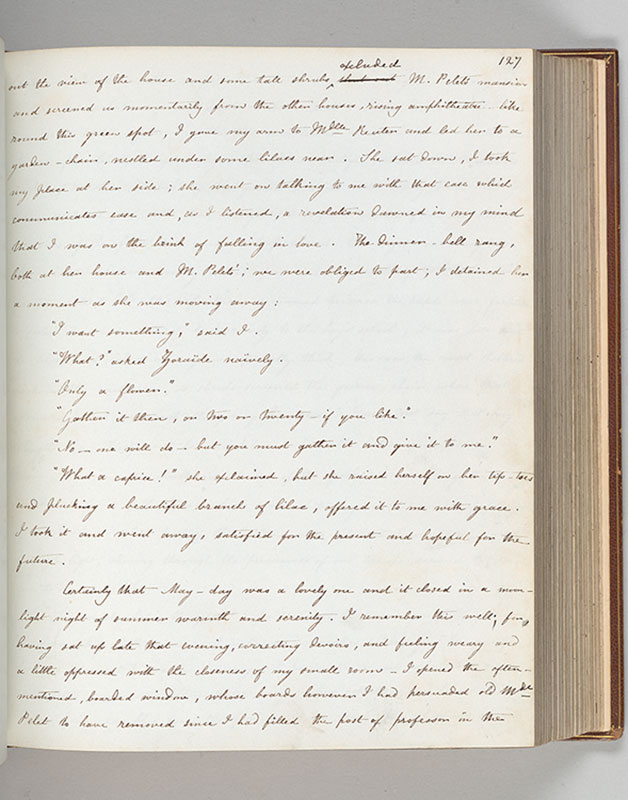 127
excluded
out the view of the house and some tall shrubs, shut out M. Pelet's mansion
and screened us momentarily from the other houses, rising amphitheatre-like
round this green spot, I gave my arm to Mdlle Reuter and led her to a
garden-chair, nestled under some lilacs near. She sat down, I took
my place at her side; she went on talking to me with that ease which
communicates ease and, as I listened, a revelation dawned in my mind
that I was on the brink of falling in love. The dinner-bell rang,
both at her house and M. Pelet's; we were obliged to part; I detained her
a moment as she was moving away:
"I want something," said I.
"What?" asked Zoraïde naïvely.
"Only a flower."
"Gather it then, or two or twenty—if you like."
"No—one will do—but you must gather it and give it to me."
"What a caprice!" she exclaimed, but she raised herself on her tip-toes
and plucking a beautiful branch of lilac, offered it to me with grace.
I took it and went away, satisfied for the present and hopeful for the
future.
Certainly that May-day was a lovely one and it closed in a moon-
light night of summer warmth and serenity. I remember this well; for,
having sat up late that evening, correcting devoirs, and feeling weary and
a little oppressed with the closeness of my small room—I opened the often-
mentioned, boarded window, whose boards however I had persuaded old Mde
Pelet to have removed since I had filled the post of professor in the